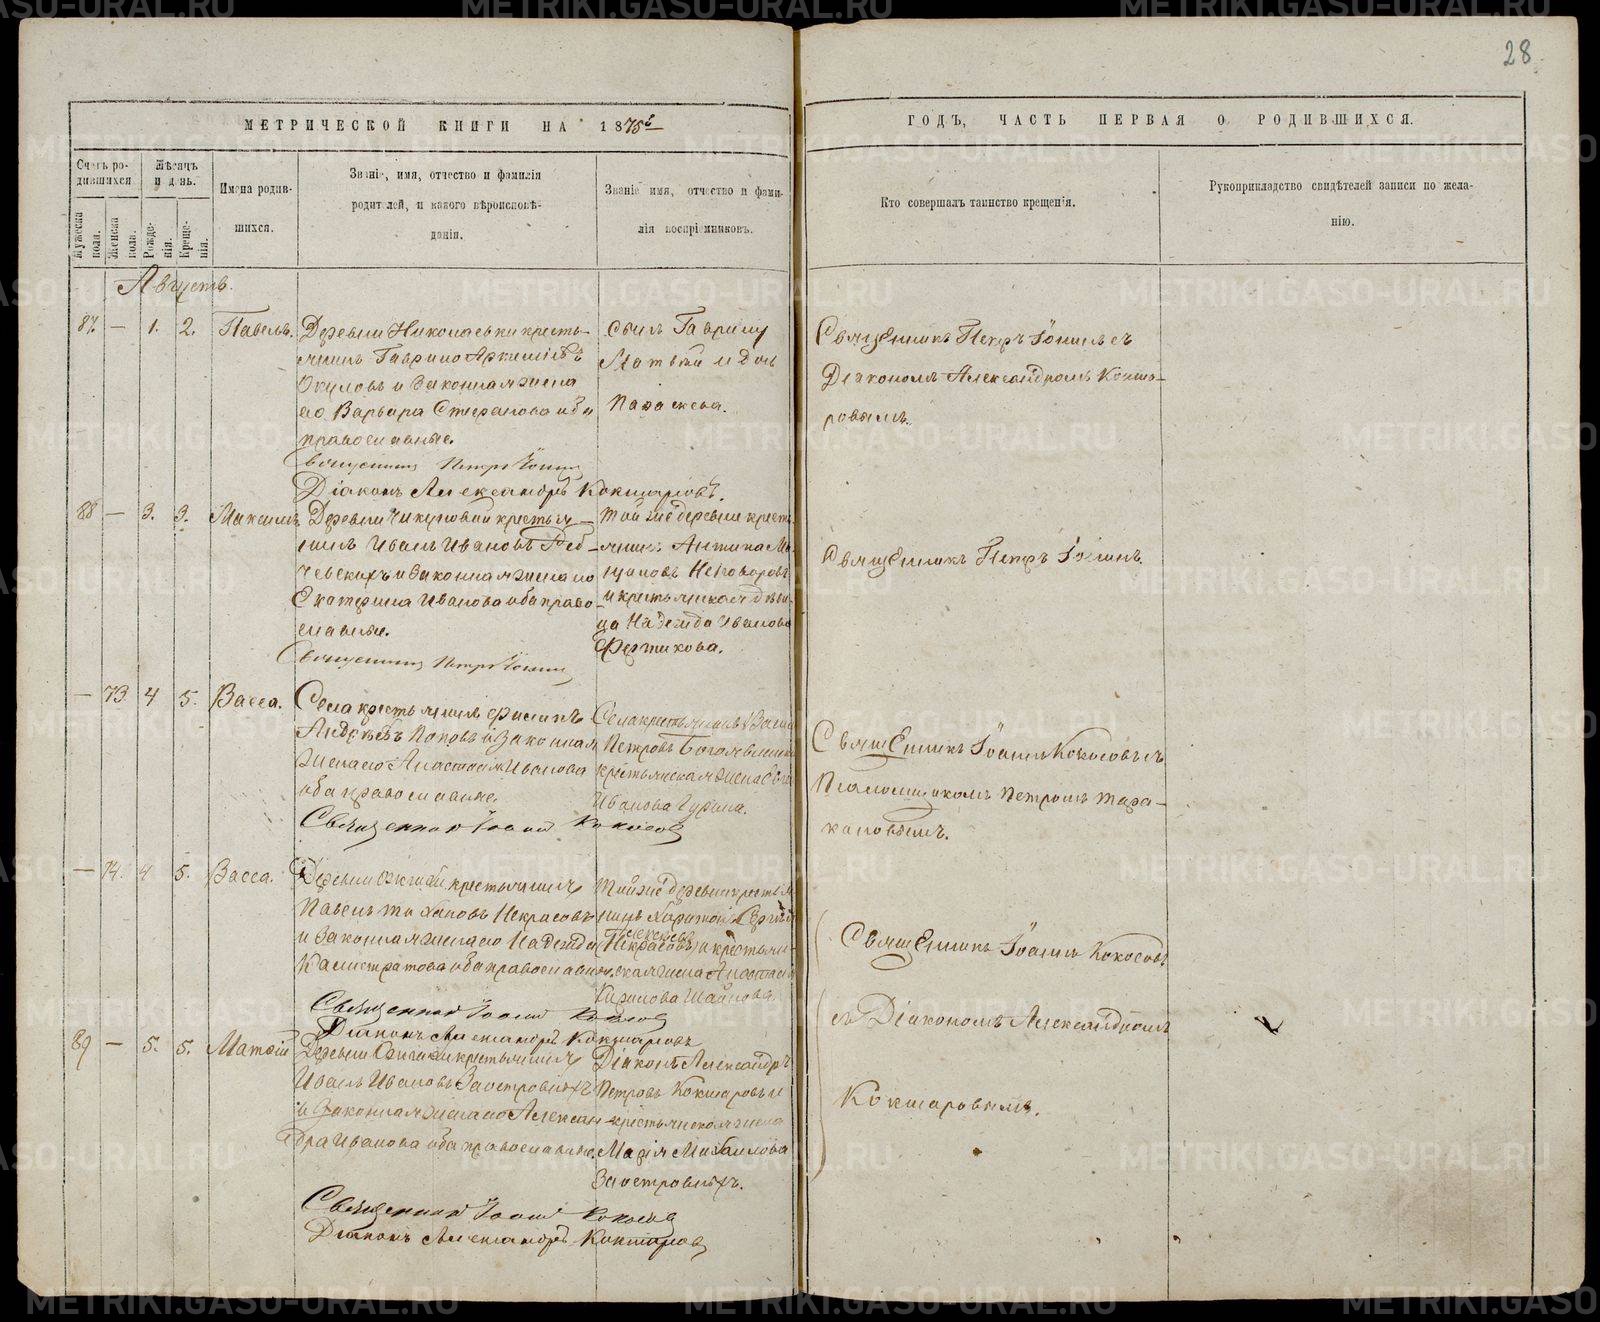 28
МЕТРИЧЕСКОЙ КНИГИ НА 1875й
ГОДЪ, ЧАСТЬ ПЕРВАЯ О РОДИВШИХСЯ.
Счетъ родившихся
Мѣсяцъ и день.
Имена родившихся.
Званіе, имя, отчество и фамилія
родителей, и какого вѣроисповѣ-
данія.
Званіе имя, отчество и фами-
лія воспріемниковъ.
Кто совершалъ таинство крещенія.
Рукоприкладство свидѣтелей записи по жела-
нію.
Мужеска пола.
Женска пола.
Рожде-
нія.
Креще-
нія.
Августъ.
87. — 1. 2. Павелъ.
Деревни Николаевки кресть-
янинъ Гаврило
Окуловъ и законная жена
его Варвара Стефанова оба
православные.
Священникъ Петръ
Діаконъ Александръ Кокшаровъ.
сынъ Гаврилу
Матвѣй и дочь
Параскева.
Священникъ Петръ съ
Діакономъ Александромъ Кокша-
ровымъ.
88 — 3. 3. Максимъ.
Деревни Чикуновой крестья-
нинъ Иванъ Ивановъ
и законная жена его
Екатерина Иванова оба право-
славные.
Священникъ Петръ
Той же деревни кресть-
янинъ Антипа
и крестьянская дѣви-
ца Надежда Иванова
Священникъ Петръ
— 73 4 5. Васса.
Села крестьянинъ Филипъ
Андреевъ Поповъ и законная
жена его Анастасія Иванова
оба православные.
Священникъ Іоаннъ Кокосовъ
Села крестьянинъ
Петровъ
крестьянская жена
Иванова
Священникъ Іоаннъ Кокосовъ съ
Псаломщикомъ Петромъ Тара-
кановымъ.
— 74. 4 5. Васса.
Деревни крестьянинъ
Павелъ Некрасовъ
и законная жена его Надежда
Калистратова оба православные.
Священникъ Іоаннъ Кокосовъ
Діаконъ Александръ Кокшаровъ
Той же деревни крестья-
нинъ Харитонъ
Некрасовъ и крестьян-
ская жена Анастасія
Кирилова
Священникъ Іоаннъ Кокосовъ
съ Діакономъ Александромъ
Кокшаровымъ.
89 — 5. 5. Матѳій
Деревни крестьянинъ
Иванъ Ивановъ Заостровныхъ
и законная жена его Алексан-
дра Иванова оба православные.
Священникъ Іоаннъ Кокосовъ
Діаконъ Александръ Кокшаровъ
Діаконъ Александръ
Петровъ Кокшаровъ и
крестьянская жена
Марія Михайлова
Заостровныхъ.